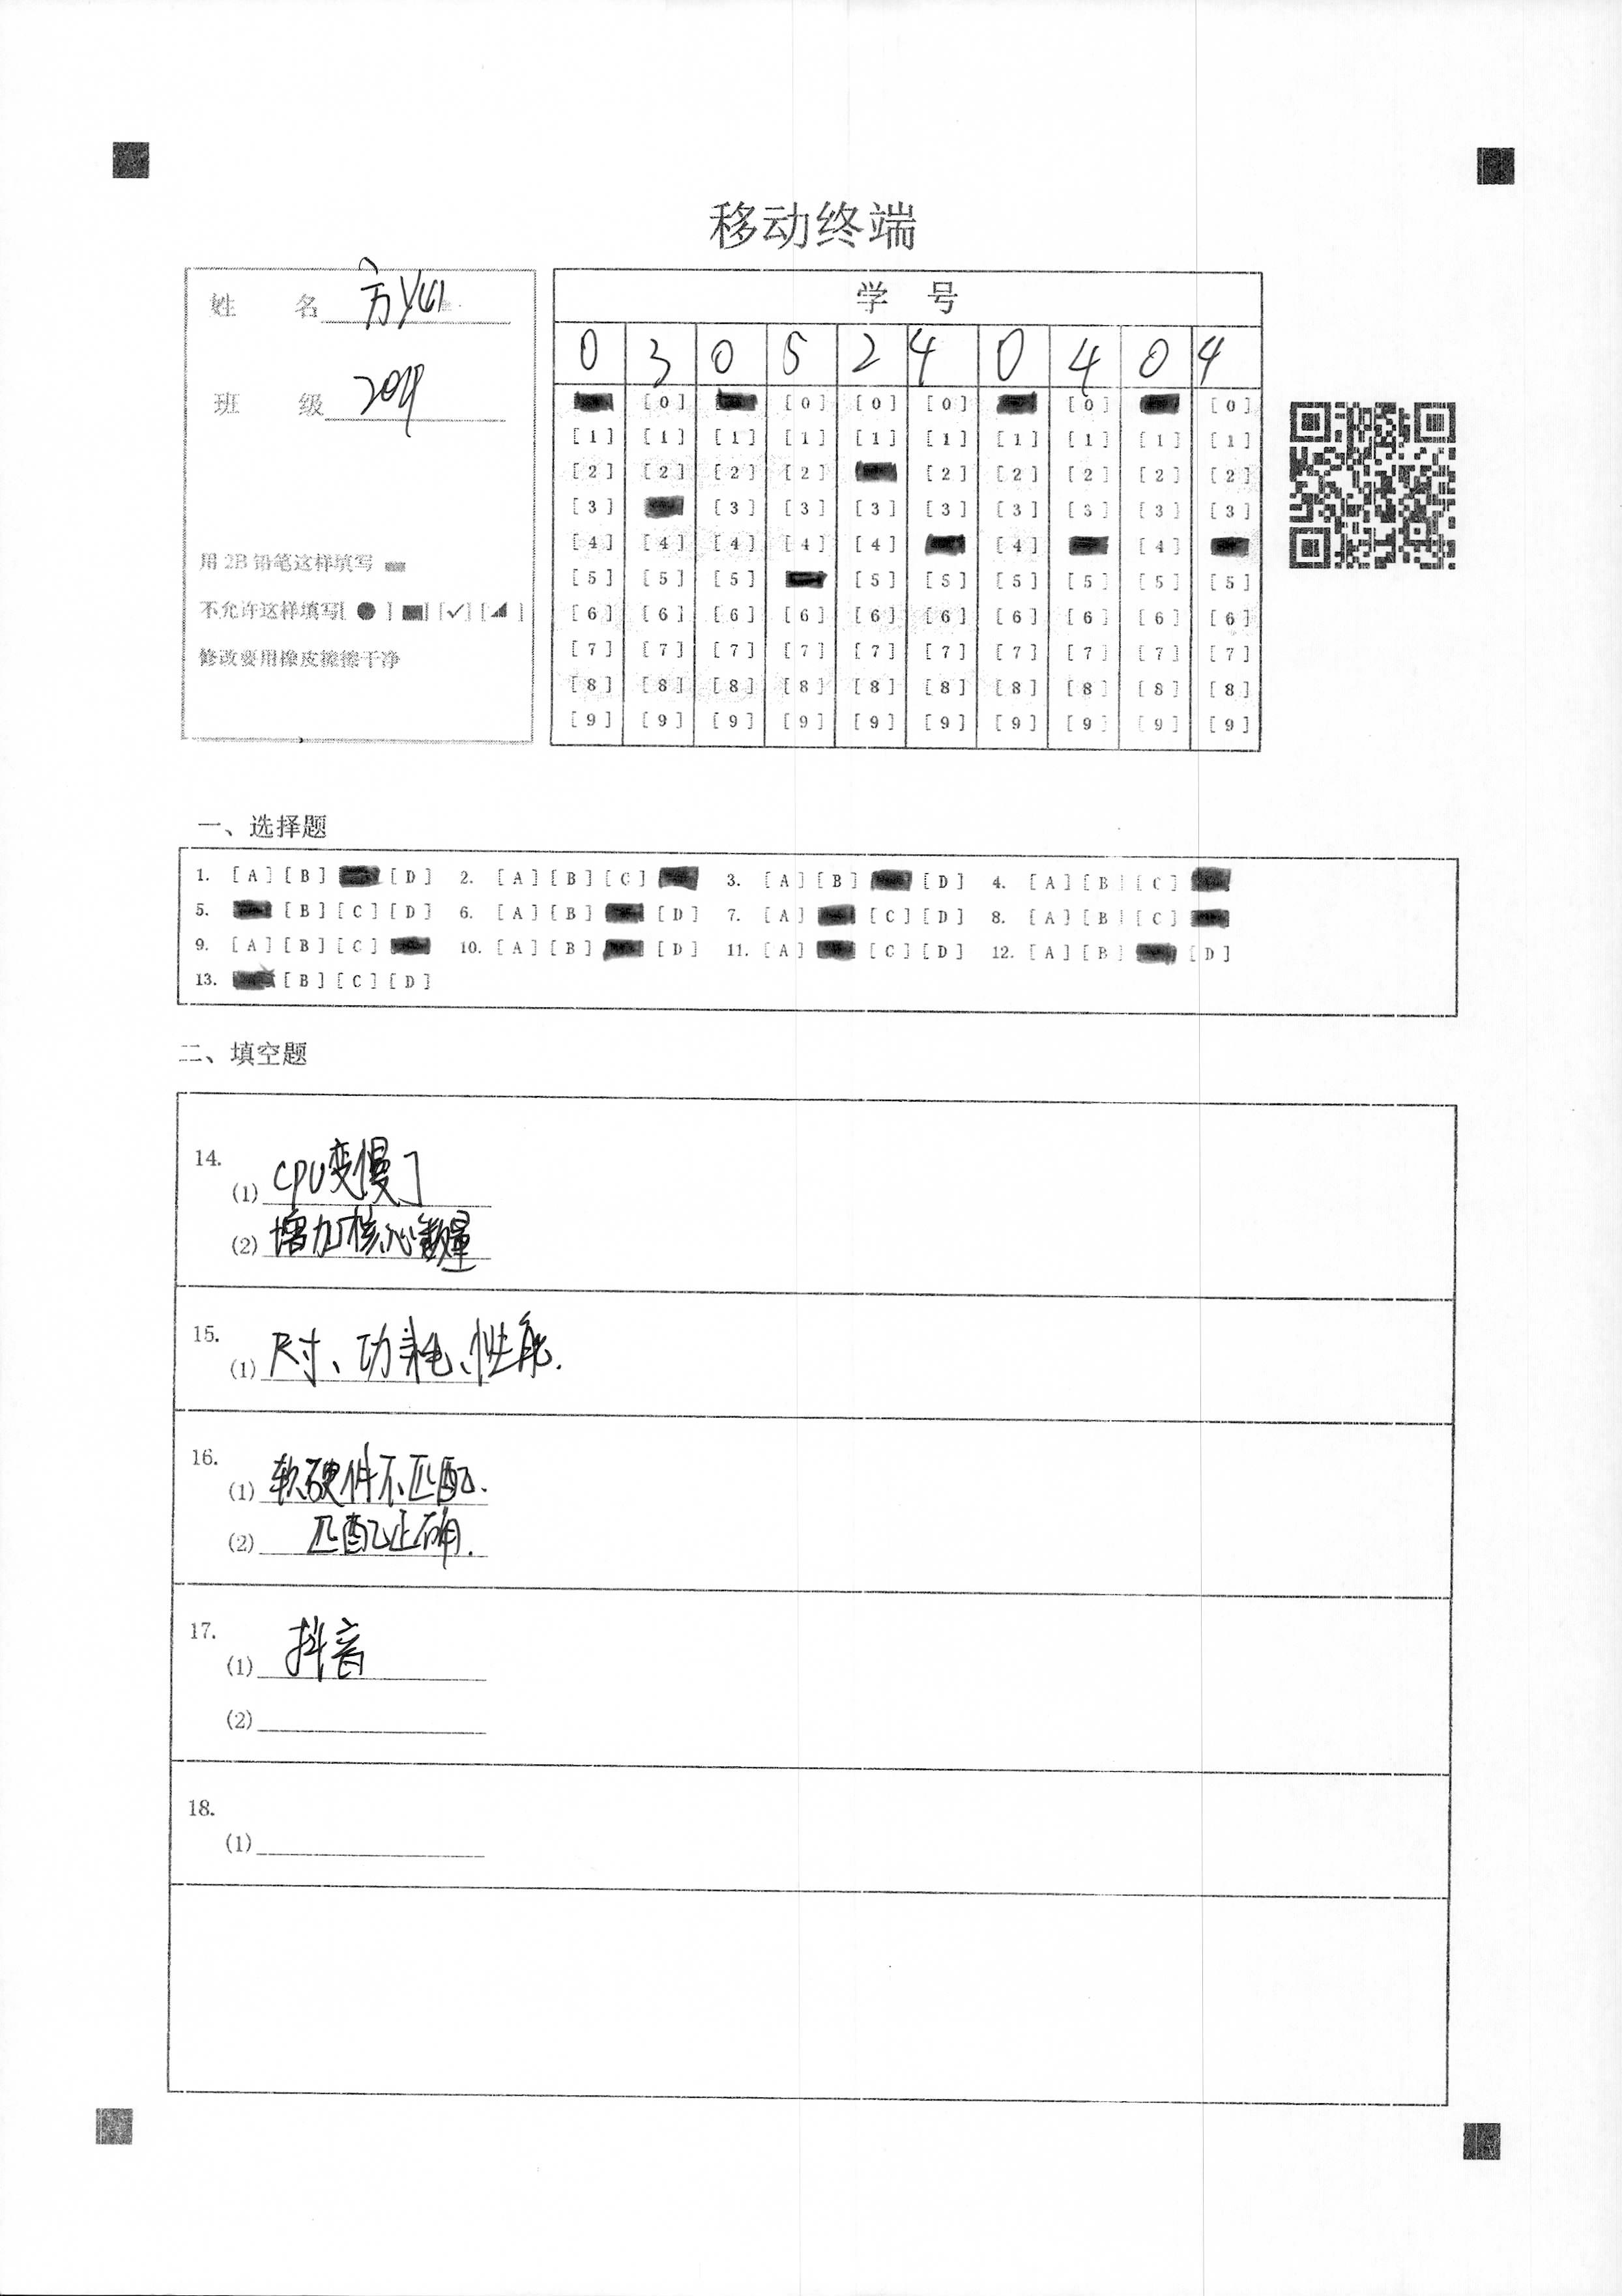 移动终端
姓 名 方
班 级
用 2B 铅笔这样填写
不允许这样填写[ ● ] ■] [✓] [◢ ]
修改要用橡皮擦擦干净
学 号
0 3 0 5 2 4 0 4 0 4
[0] [0] [0] [0] [0] [0]
[1] [1] [1] [1] [1] [1] [1] [1] [1] [1]
[2] [2] [2] [2] [2] [2] [2] [2] [2]
[3] [3] [3] [3] [3] [3] [3] [3] [3]
[4] [4] [4] [4] [4] [4] [4]
[5] [5] [5] [5] [5] [5] [5] [5] [5]
[6] [6] [6] [6] [6] [6] [6] [6] [6] [6]
[7] [7] [7] [7] [7] [7] [7] [7] [7] [7]
[8] [8] [8] [8] [8] [8] [8] [8] [8] [8]
[9] [9] [9] [9] [9] [9] [9] [9] [9] [9]
一、选择题
1. [A] [B] [D] 2. [A] [B] [C] 3. [A] [B] [D] 4. [A] [B] [C]
5. [B] [C] [D] 6. [A] [B] [D] 7. [A] [C] [D] 8. [A] [B] [C]
9. [A] [B] [C] 10. [A] [B] [D] 11. [A] [C] [D] 12. [A] [B] [D]
13. [B] [C] [D]
二、填空题
14.
(1) CPU变慢了
(2) 增加核心数量
15.
(1) 尺寸、功耗、性能.
16.
(1) 软硬件不匹配.
(2) 匹配正确.
17.
(1) 抖音
(2)
18.
(1)